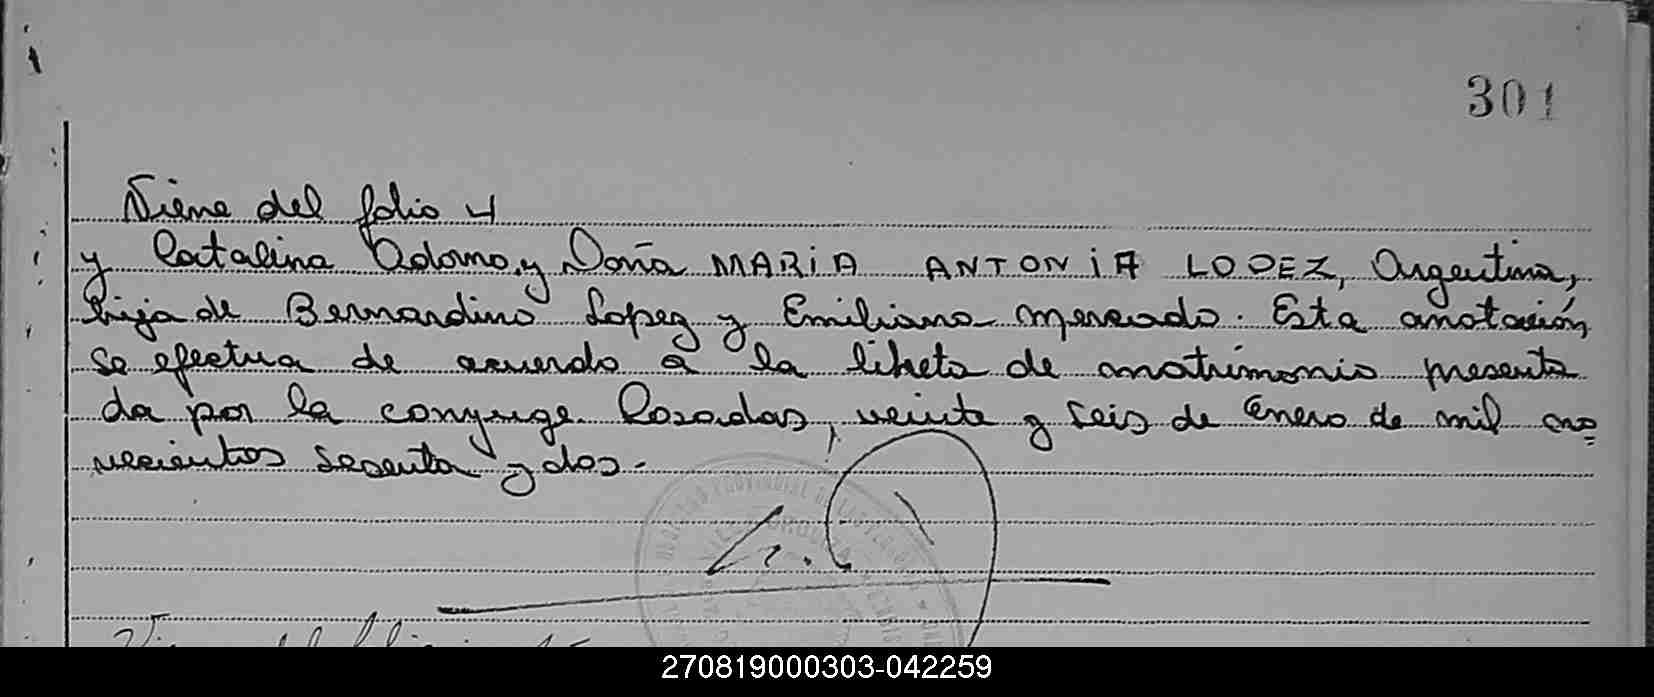 301
Viene del folio 4
y Catalina Adorno, y Doña MARIA ANTONIA LOPEZ, Argentina,
hija de Bernardino Lopez y Emiliana Mercado. Esta anotación
se efectua de acuerdo a la libreta de matrimonio presenta
da por la conyuge. Posadas, veinte y seis de Enero de mil no=
vecientos sesenta y dos.-
270819000303-042259